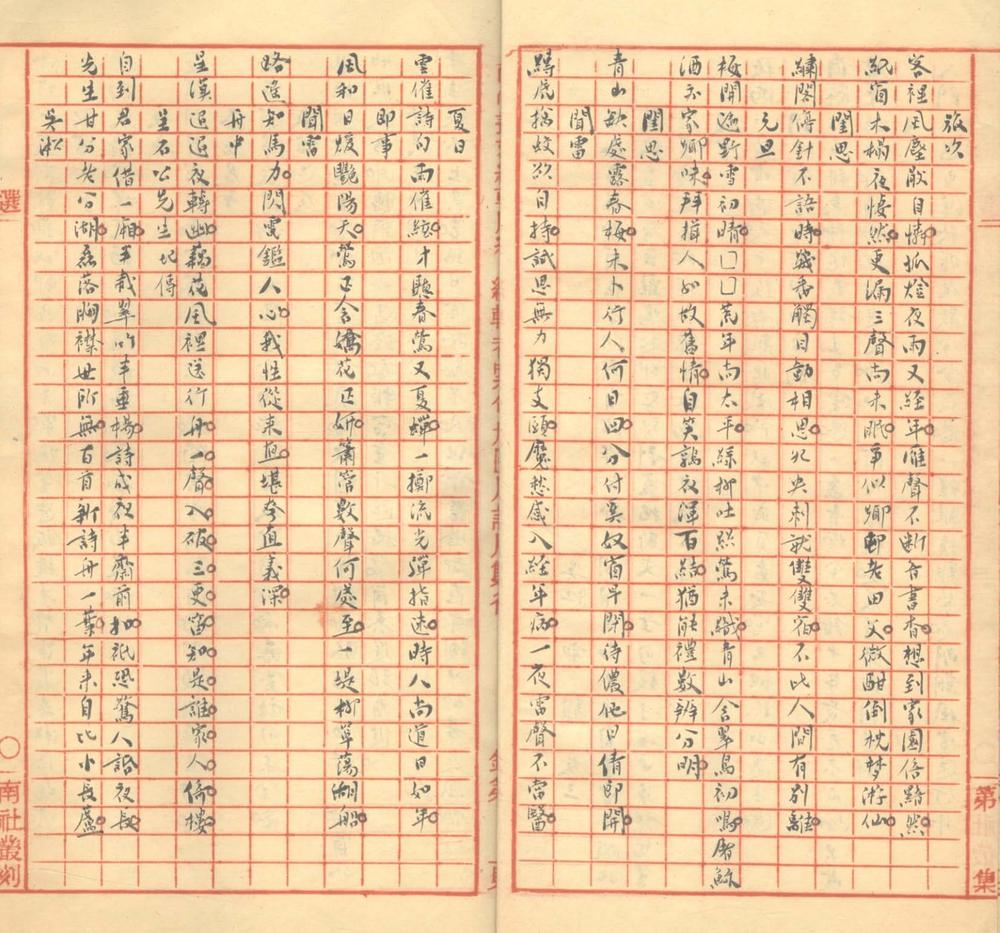 旅次
客裡風塵厭自憐孤燈夜雨又經年雁聲不斷音書杳想到家園倍黯然
紙窗木榻夜悽然更漏三聲尚未眠事似鄉鄰老田父微酣倒枕夢游仙
閨思
繡閣停針不語時幾番觸目動相思
人間有別離
元旦
梅開遍野雪初晴囗囗荒年尚太平綠柳吐絲鶯未織青山含翠鳥初鳴屠穌
酒亦家鄉味拜揖人如故舊情自笑鶉衣渾百結猶能禮數辨分明
閨思
青山缺處露春梅未卜行人何日回分付奚奴窗早閉待儂他日倩郎開
聞雷
捋虎捉蛟欲自持試思無力獨支頤魔愁感入經年病一夜雷聲不當醫
夏日
雲催詩句雨催絃才聽春鶯又夏蟬一擲流光彈指速時人尚道日如年
即事
風和日煖艷陽天鶯正含嬌花正妍簫管數聲何處至一堤柳單蕩湖船
聞雷
路遙知馬力閃電鑑人心我性從來直堪夸直義深
舟中
星漢迢迢夜轉幽藕花風裡送行舟一聲入破三更笛知是誰家人倚樓
呈石公先生
自到君家借一廂半栽翠竹半垂楊詩成夜半齋前扣祇恐驚人話夜長
先生甘分老分湖磊落胸襟世所無百首新詩舟一葉年來自比小長蘆
吳淞
選
南社叢刻
第
集